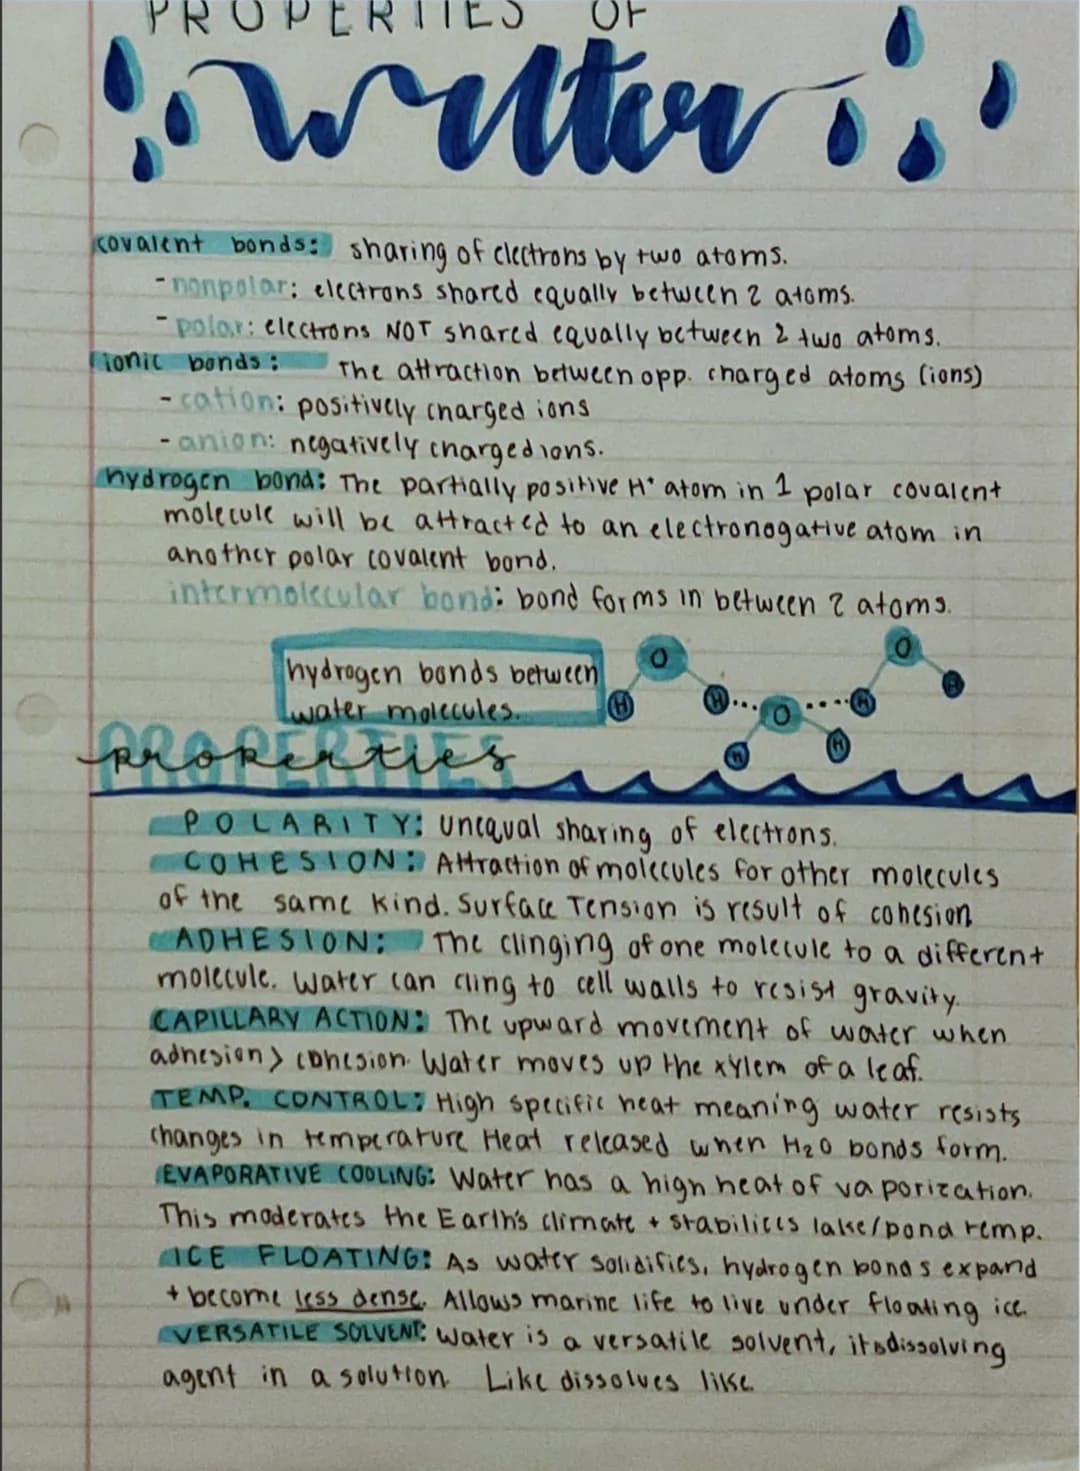 PROPERTIES OF
water
covalent bonds: sharing of electrons by two atoms.
- nonpolar: electrons shared equally between 2 atoms.
- polar: electrons NOT shared equally between 2 two atoms.
ionic bonds: The attraction between opp. charged atoms (ions)
- cation: positively charged ions
- anion: negatively charged ions.
hydrogen bond: The partially positive H⁺ atom in 1 polar covalent
molecule will be attracted to an electronogative atom in
another polar covalent bond.
intermolecular bond: bond forms in between 2 atoms.
hydrogen bonds between
water molecules.
O H H O H H O H H
PROPERTIES
properties
POLARITY: Unequal sharing of electrons.
COHESION: Attraction of molecules for other molecules
of the same kind. Surface Tension is result of cohesion
ADHESION: The clinging of one molecule to a different
molecule. Water can cling to cell walls to resist gravity.
CAPILLARY ACTION: The upward movement of water when
adhesion > cohesion. Water moves up the xylem of a leaf.
TEMP. CONTROL: High specific heat meaning water resists
changes in temperature Heat released when H₂O bonds form.
EVAPORATIVE COOLING: Water has a high heat of vaporization.
This moderates the Earth's climate + stabilices lake/pond temp.
ICE FLOATING: As water solidifies, hydrogen bonds expand
+ become less dense. Allows marine life to live under floating ice.
VERSATILE SOLVENT: Water is a versatile solvent, its dissolving
agent in a solution. Like dissolves like.